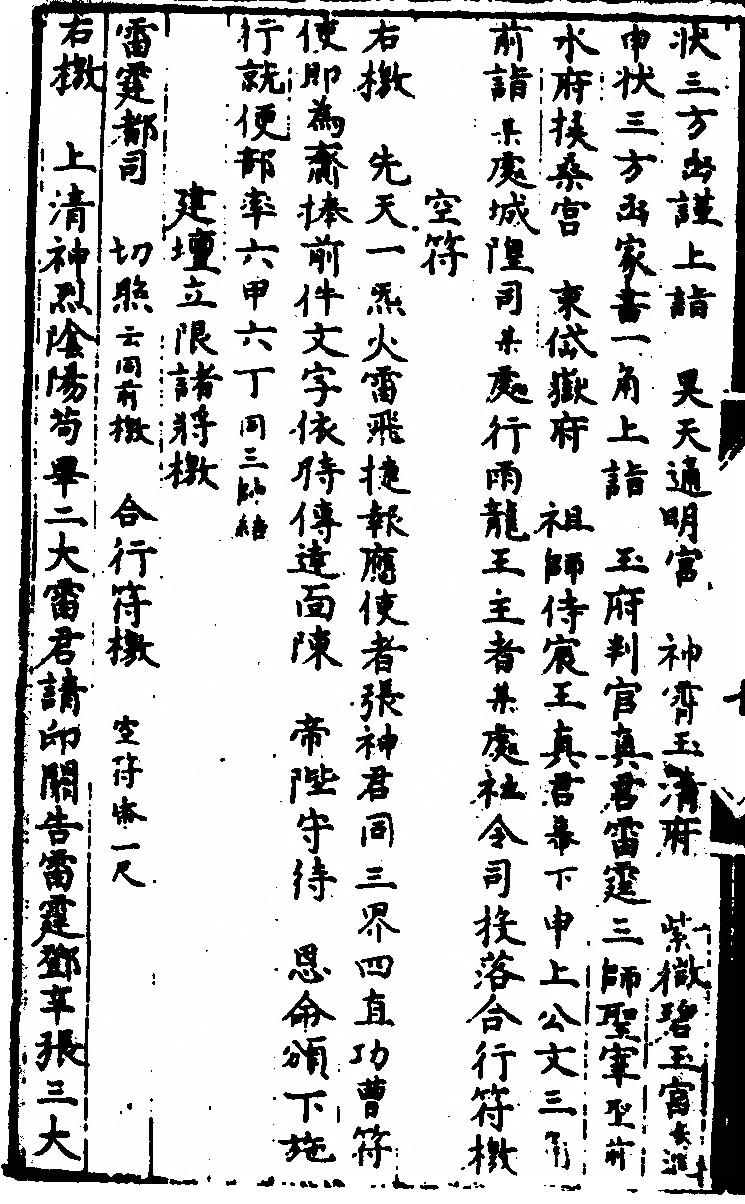 狀三方凾謹上詣　昊天通明宮　神霄玉清府　紫微碧玉宮
申狀三方凾家書一角上詣　玉府判官真君雷霆三師聖宰聖前
水府扶桑宮　東岱嶽府　祖師侍宸王真君幕下申上公文三角
前詣某處城隍司某處行雨龍王主者某處社令司投落合行符檄
空符
右檄　先天一炁火雷飛捷報應使者張神君同三界四直功曹符
使即為齎捧前件文字依時傳達面陳　帝陛守待　恩命頒下施
行就便部率六甲六丁同三師
建壇立限諸將檄
雷霆都司　切照云同前檄　合行符檄　空符一尺
右檄　上清神烈陰陽苟畢二大雷君請印關告雷霆鄧辛張三大